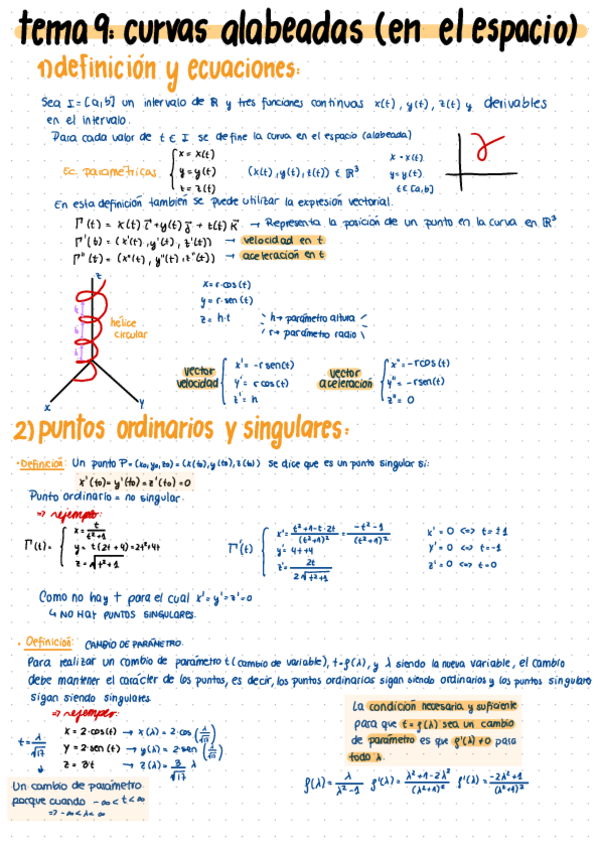 tema 9: curvas alabeadas (en el espacio)
1) definición y ecuaciones:
Sea I=[a,b] un intervalo de ℝ y tres funciones continuas x(t), y(t), z(t) y derivables
en el intervalo.
Para cada valor de t ∈ I se define la curva en el espacio (alabeada)
Ec. parametricas { x = x(t)
y = y(t)
z = z(t)
(x(t), y(t), z(t)) ∈ ℝ³
x = x(t)
y = y(t)
t ∈ [a,b]
En esta definición también se puede utilizar la expresión vectorial.
Γ(t) = x(t) i + y(t) j + z(t) K → Representa la posición de un punto en la curva en ℝ³
Γ'(t) = (x'(t), y'(t), z'(t)) → velocidad en t
Γ''(t) = (x''(t), y''(t), z''(t)) → aceleración en t
z
x
y
hélice
circular
x = r·cos(t)
y = r·sen(t)
z = h·t
h → parámetro altura
r → parámetro radio
vector
velocidad
x' = -r sen(t)
y' = r cos(t)
z' = h
vector
aceleración
x'' = -r cos(t)
y'' = -r sen(t)
z'' = 0
2) puntos ordinarios y singulares:
· Definición: Un punto P = (x₀, y₀, z₀) = (x(t₀), y(t₀), z(t₀)) se dice que es un punto singular si:
x'(t₀) = y'(t₀) = z'(t₀) = 0
Punto ordinario = no singular.
⇒ ejemplo:
Γ(t) = { x = t/(t²+1)
y = t(2t+4) = 2t²+4t
z = √(t²+1)
Γ'(t) { x' = (t²+1-t·2t)/(t²+1)² = (-t²-1)/(t²+1)²
y' = 4t+4
z' = 2t/(2√(t²+1))
x' = 0 <=> t = ±1
y' = 0 <=> t = -1
z' = 0 <=> t = 0
Como no hay t para el cual x'=y'=z'=0
↳ NO HAY PUNTOS SINGULARES.
· Definición: CAMBIO DE PARÁMETRO.
Para realizar un cambio de parámetro t (cambio de variable), t=g(λ), y λ siendo la nueva variable, el cambio
debe mantener el carácter de los puntos, es decir, los puntos ordinarios sigan siendo ordinarios y los puntos singulares
sigan siendo singulares
⇒ ejemplo:
x = 2·cos(t) → x(λ) = 2·cos
y = 2·sen(t) → y(λ) = 2·sen
z = 3t → z(λ) =
La condición necesaria y suficiente
para que t = g(λ) sea un cambio
de parámetro es que g'(λ) ≠ 0 para
todo λ.
Un cambio de parámetro
porque cuando -∞ < t < ∞
⇒ -∞ < λ < ∞